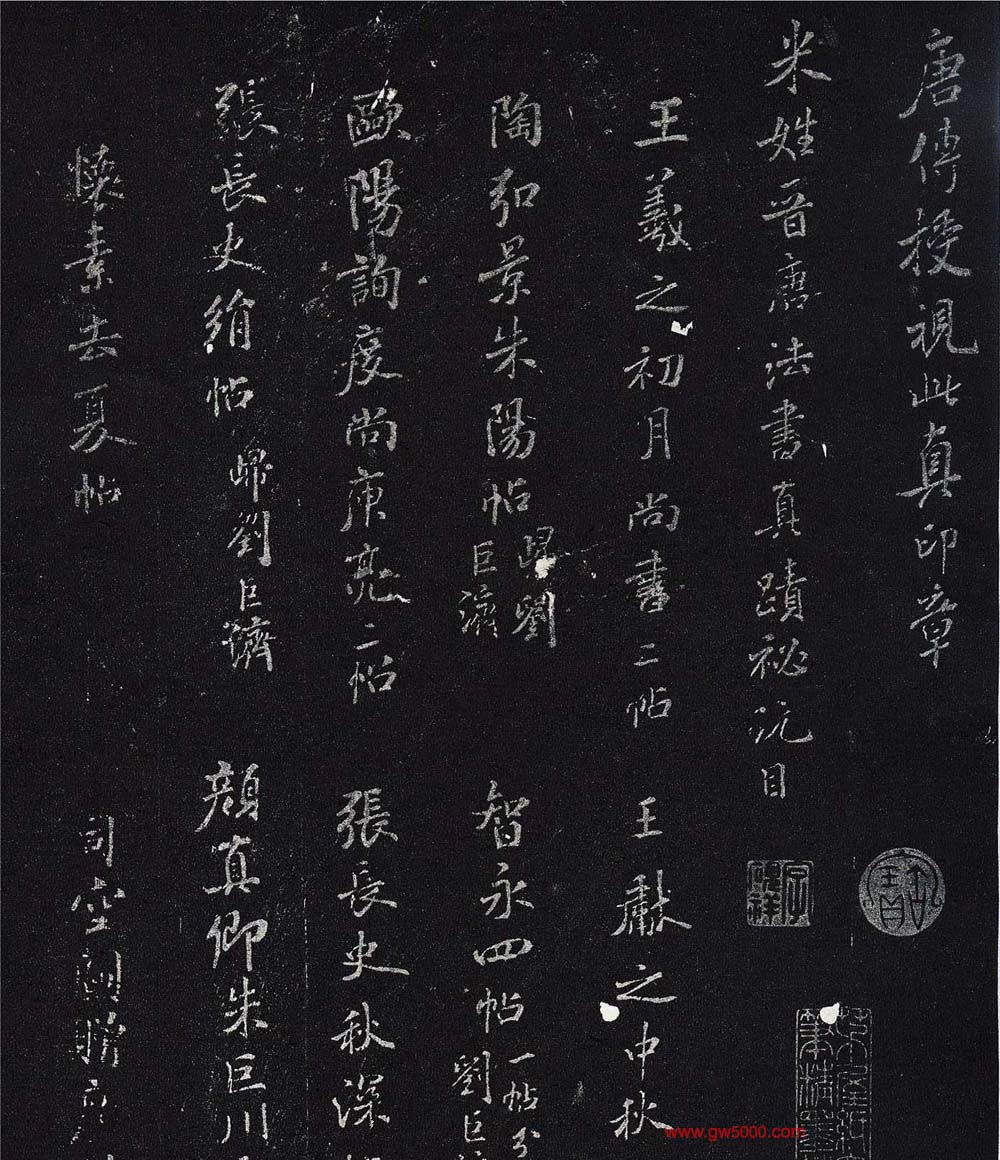 唐傅授視此真印章
米姓晉唐法書真蹟祕玩目
王羲之初月尚書二帖
王獻之中秋
陶弘景朱陽帖
歸劉
巨濟
智永四帖
一帖分
劉巨濟
歐陽詢度尚庾亮二帖
張長史秋深
張長史絹帖 歸劉巨濟
顏真卿朱巨川
懷素去夏帖
司空圖贈
www.gw5000.com